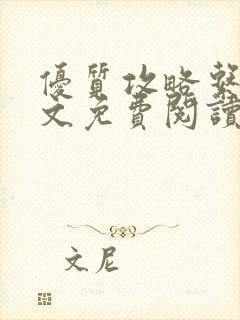 優質攻略繫
文免費閱讀
文尼